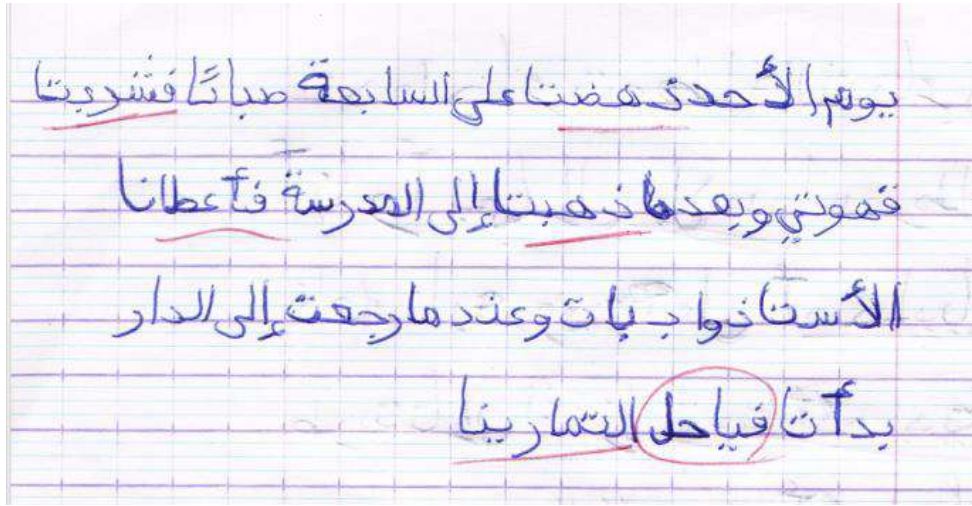 يوم الأحد نهضتا على السابعة صباتًا فشربتا
قهوتي وبعدها ذهبتا إلى المدرسة فأعطانا
الأستاذ واجبات وعند ما رجعت إلى الدار
بدأتا فيا حل التمارينا